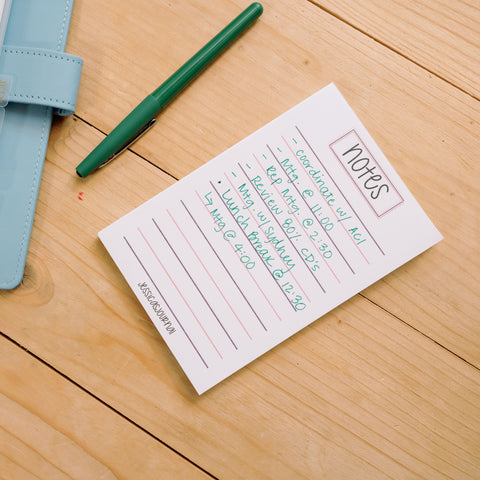 notes
- coordinate w/ ACI
- Mtg. @ 11:00
- Rep Mtg. @ 2:30
- Review 80% CD's
- Mtg w/ Sydney
• Lunch Break @ 12:30
↳ Mtg @ 4:00
JESSICASJOURNAL